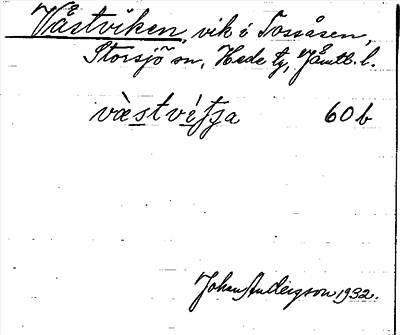 Våstviken, vik i Tossåsen,
Storsjö sn, Hede tg, Jämtl. l.
væst vétʃa 60 b
Johan Andersson 1932.